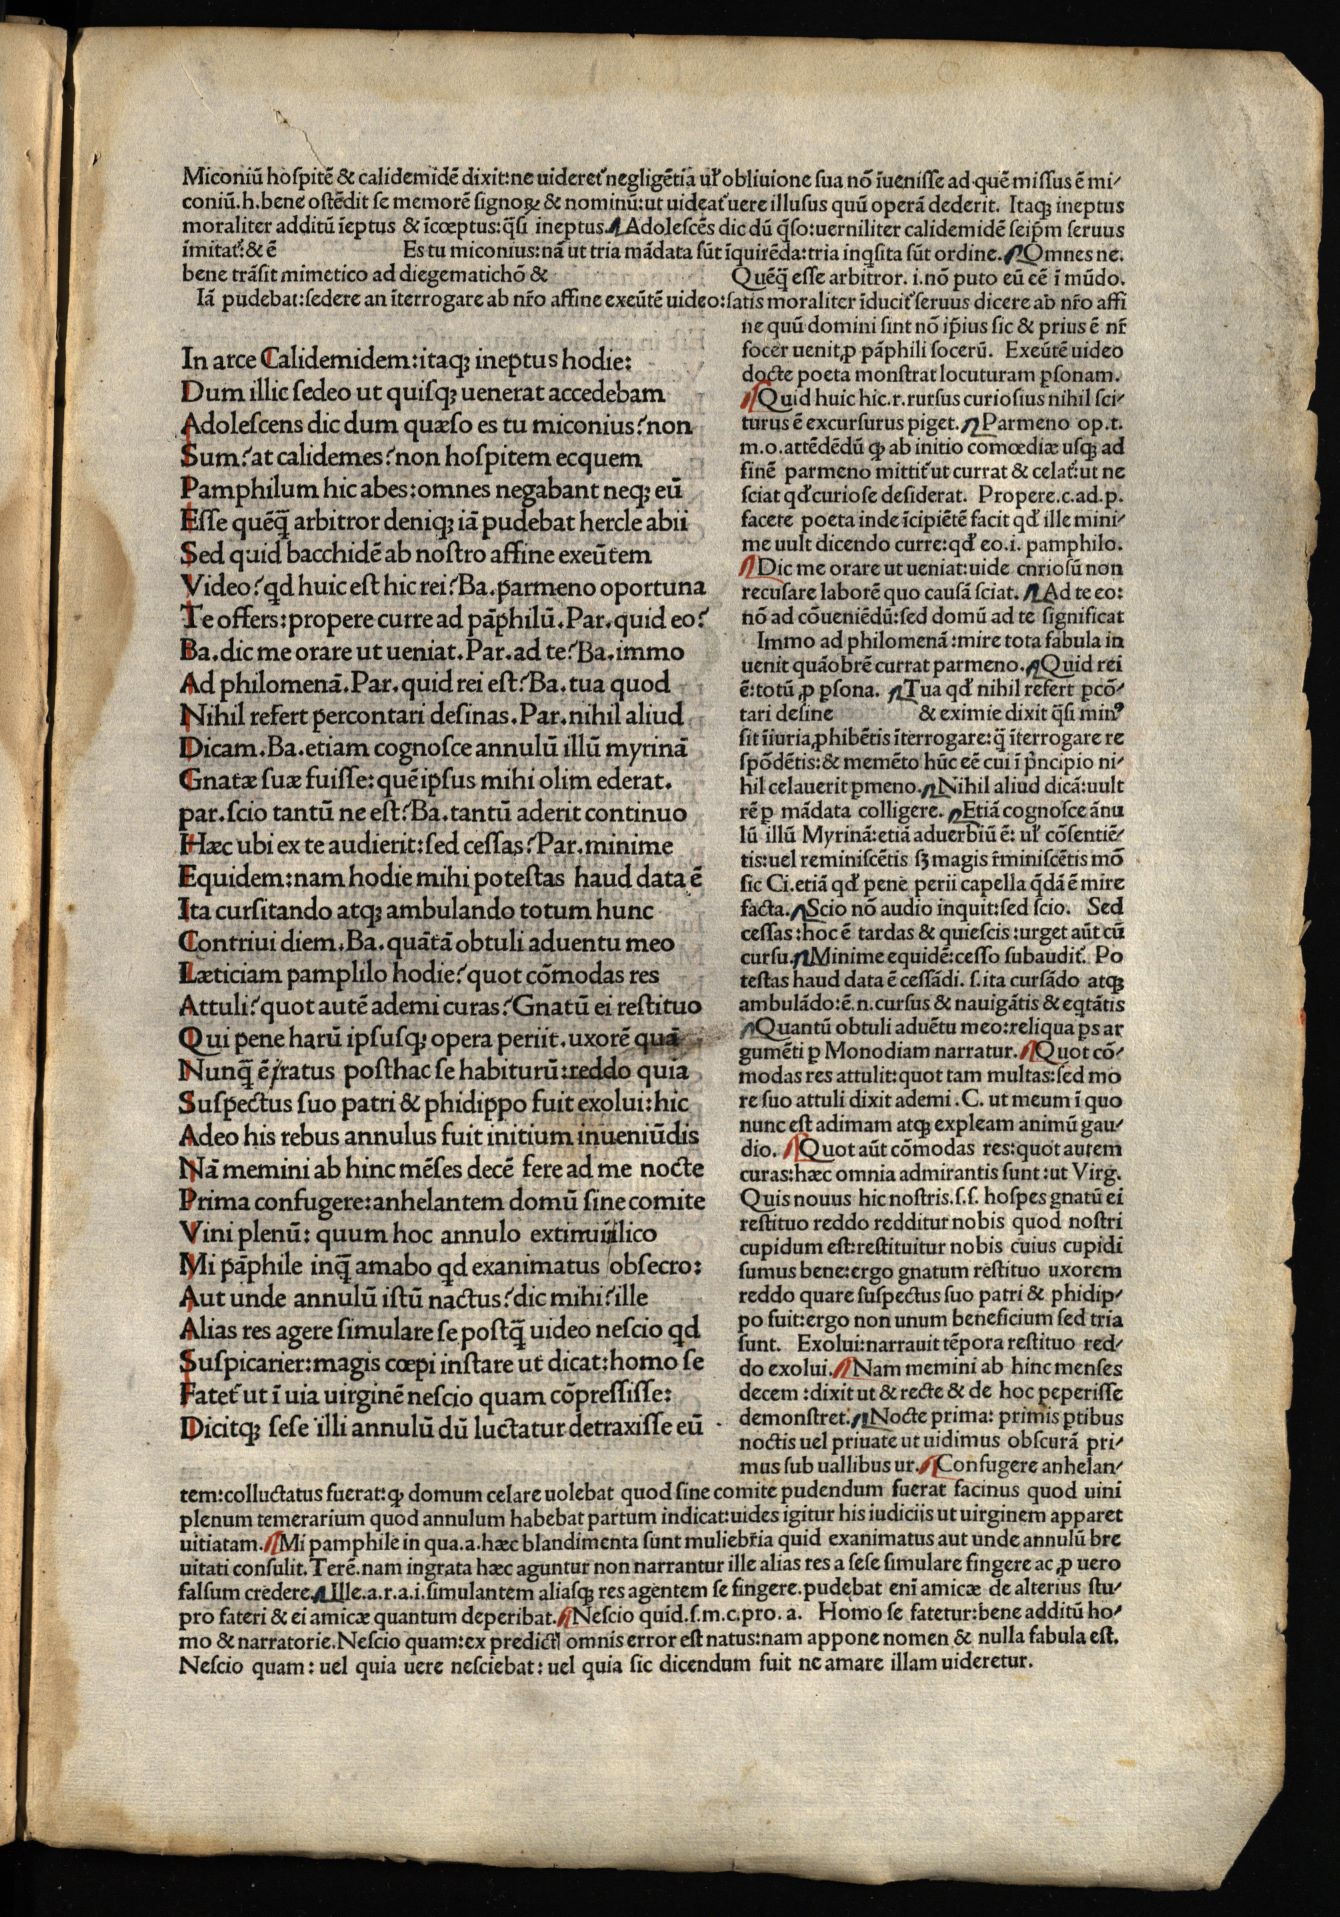 Miconiū hoſpitē & calidemidē dixit:ne uideretͬ negligētia uł obliuione sua nō īueniſſe ad quē miſſus ē mi⸗
coniū.h.bene oſtēdit ſe memorē ſignoꝝ & nominū:ut uideatͬ uere illuſus quū operā dederit. Itaqꝫ ineptus
moraliter additū īeptus & īcœptus:q̄ſi ineptus.¶Adoleſcēs dic dū q̄ſo:uerniliter calidemidē ſeip̄m ſeruus
imitatͬ:& ē Es tu miconius:nā ut tria mādata ſūt īquirēda:tria inqſita ſūt ordine.¶Omnes ne.
bene trāſit mimetico ad diegematichō & Quēq̄ eſſe arbitror. i.nō puto eū eē ī mūdo.
Iā pudebat:ſedere an īterrogare ab nr̄o affine exeūtē uideo:ſatis moraliter īducitͬ ſeruus dicere ab nr̄o affi
In arce Calidemidem:itaqꝫ ineptus hodie:
Dum illic ſedeo ut quiſqꝫ uenerat accedebam
Adoleſcens dic dum quæſo es tu miconius?non
Sum?at calidemes?non hoſpitem ecquem
Pamphilum hic abes:omnes negabant neqꝫ eū
Eſſe quēq̄ arbitror deniqꝫ iā pudebat hercle abii
Sed quid bacchidē ab noſtro affine exeūtem
Video?qd huic eſt hic rei?Ba.parmeno oportuna
Te offers:propere curre ad pāphilū.Par.quid eo?
Ba.dic me orare ut ueniat.Par.ad te?Ba.immo
Ad philomenā.Par.quid rei eſt?Ba.tua quod
Nihil refert ꝑcontari deſinas.Par.nihil aliud
Dicam.Ba.etiam cognoſce annulū illū myrinā
Gnatæ ſuæ fuiſſe:quē ipſus mihi olim ederat.
par.ſcio tantū ne eſt?Ba.tantū aderit continuo
Hæc ubi ex te audierit:ſed ceſſas?Par.minime
Equidem:nam hodie mihi poteſtas haud data ē
Ita curſitando atqꝫ ambulando totum hunc
Contriui diem.Ba.quātā obtuli aduentu meo
Læticiam pamplilo hodie?quot cōmodas res
Attuli?quot autē ademi curas?Gnatū ei reſtituo
Qui pene harū ipſuſqꝫ opera periit.uxorē quā
Nunq̄ ē ratus poſthac ſe habiturū:reddo quia
Suſpectus ſuo patri & phidippo fuit exolui:hic
Adeo his rebus annulus fuit initium inueniūdis
Nā memini ab hinc mēſes decē fere ad me nocte
Prima confugere:anhelantem domū ſine comite
Vini plenū: quum hoc annulo extimui ilico
Mi pāphile inq̄ amabo qd exanimatus obſecro:
Aut unde annulū iſtū nactus?dic mihi?ille
Alias res agere ſimulare ſe poſtq̄ uideo neſcio qd
Suſpicarier:magis cœpi inſtare ut dicat:homo ſe
Fatetͬ ut ī uia uirginē neſcio quam cōpreſſiſſe:
Dicitqꝫ ſeſe illi annulū dū luctatur detraxiſſe eū
ne quū domini ſint nō ip̄ius ſic & prius ē nr̄
ſocer uenit,ꝓ pāphili ſocerū. Exeūtē uideo
docte poeta monſtrat locuturam ꝑſonam.
¶Quid huic hic.r.rurſus curioſius nihil ſci⸗
turus ē excurſurus piget.¶Parmeno op.t.
m.o.attēdēdū ꝙ ab initio comœdiæ uſqꝫ ad
finē parmeno mittitͬ ut currat & celatͬ:ut ne
ſciat qđ curioſe deſiderat. Propere.c.ad.p.
facete poeta inde īcipiētē facit qđ ille mini⸗
me uult dicendo curre:qđ eo.i. pamphilo.
¶Dic me orare ut ueniat:uide cnrioſū non
recuſare laborē quo cauſā ſciat.¶Ad te eo:
nō ad cōueniēdū:ſed domū ad te ſignificat
Immo ad philomenā:mire tota fabula in
uenit quāobrē currat parmeno.¶Quid rei
ē:totū ꝓ ꝑſona. ¶Tua qđ nihil refert ꝑcō⸗
tari deſine & eximie dixit q̄ſi minꝰ
ſit īiuria ꝓhibētis īterrogare:q̄ īterrogare re
ſpōdētis:& memēto hūc eē cui ī pͥncipio ni⸗
hil celauerit ꝑmeno.¶Nihil aliud dicā:uult
rē ꝑ mādata colligere. ¶Etiā cognoſce ānu
lū illū Myrinā:etiā aduerbiū ē: uł cōſentiē⸗
tis:uel reminiſcētis ſꝫ magis r̄miniſcētis mō
ſic Ci.etiā qđ pene perii capella q̄dā ē mire
facta.¶Scio nō audio inquit:ſed ſcio. Sed
ceſſas:hoc ē tardas & quieſcis:urget aūt cū
curſu.¶Minime equidē:ceſſo ſubauditͬ. Po
teſtas haud data ē ceſſādi. ſ.ita curſādo atqꝫ
ambulādo:ē.n.curſus & nauigātis & eqtātis
¶Quantū obtuli aduētu meo:reliqua ꝑs ar
gumēti ꝑ Monodiam narratur.¶Quot cō⸗
modas res attulit:quot tam multas:ſed mo
re ſuo attuli dixit ademi.C. ut meum ī quo
nunc eſt adimam atqꝫ expleam animū gau⸗
dio. ¶Quot aūt cōmodas res:quot autem
curas:hæc omnia admirantis ſunt:ut Virg.
Quis nouus hic noſtris.ſ.ſ. hoſpes gnatū ei
reſtituo reddo redditur nobis quod noſtri
cupidum eſt:reſtituitur nobis cuius cupidi
ſumus bene:ergo gnatum reſtituo uxorem
reddo quare ſuſpectus ſuo patri & phidip⸗
po fuit:ergo non unum beneficium ſed tria
ſunt. Exolui:narrauit tēpora reſtituo red⸗
do exolui.¶Nam memini ab hinc menſes
decem:dixit ut & recte & de hoc peperiſſe
demonſtret.¶Nocte prima: primis ꝑtibus
noctis uel priuate ut uidimus obſcurā pri⸗
mus ſub uallibus ur.¶Confugere anhelan⸗
tem:colluctatus fuerat:ꝙ domum celare uolebat quod ſine comite pudendum fuerat facinus quod uini
plenum temerarium quod annulum habebat partum indicat:uides igitur his iudiciis ut uirginem apparet
uitiatam.¶Mi pamphile in qua.a.hæc blandimenta ſunt muliebr̄ia quid exanimatus aut unde annulū bre
uitati conſulit.Terē.nam ingrata hæc aguntur non narrantur ille alias res a ſeſe ſimulare fingere ac,ꝓ uero
falſum credere.¶Ille.a.r.a.i.ſimulantem aliaſqꝫ res agentem ſe fingere.pudebat enī amicæ de alterius ſtu⸗
pro fateri & ei amicæ quantum deperibat.¶Neſcio quid.ſ.m.c.pro. a. Homo ſe fatetur:bene additū ho⸗
mo & narratorie.Neſcio quam:ex predicti omnis error eſt natus:nam appone nomen & nulla fabula eſt.
Neſcio quam: uel quia uere neſciebat: uel quia ſic dicendum fuit ne amare illam uideretur.